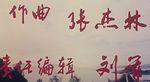 作曲 张杰林
责任编辑 刘学